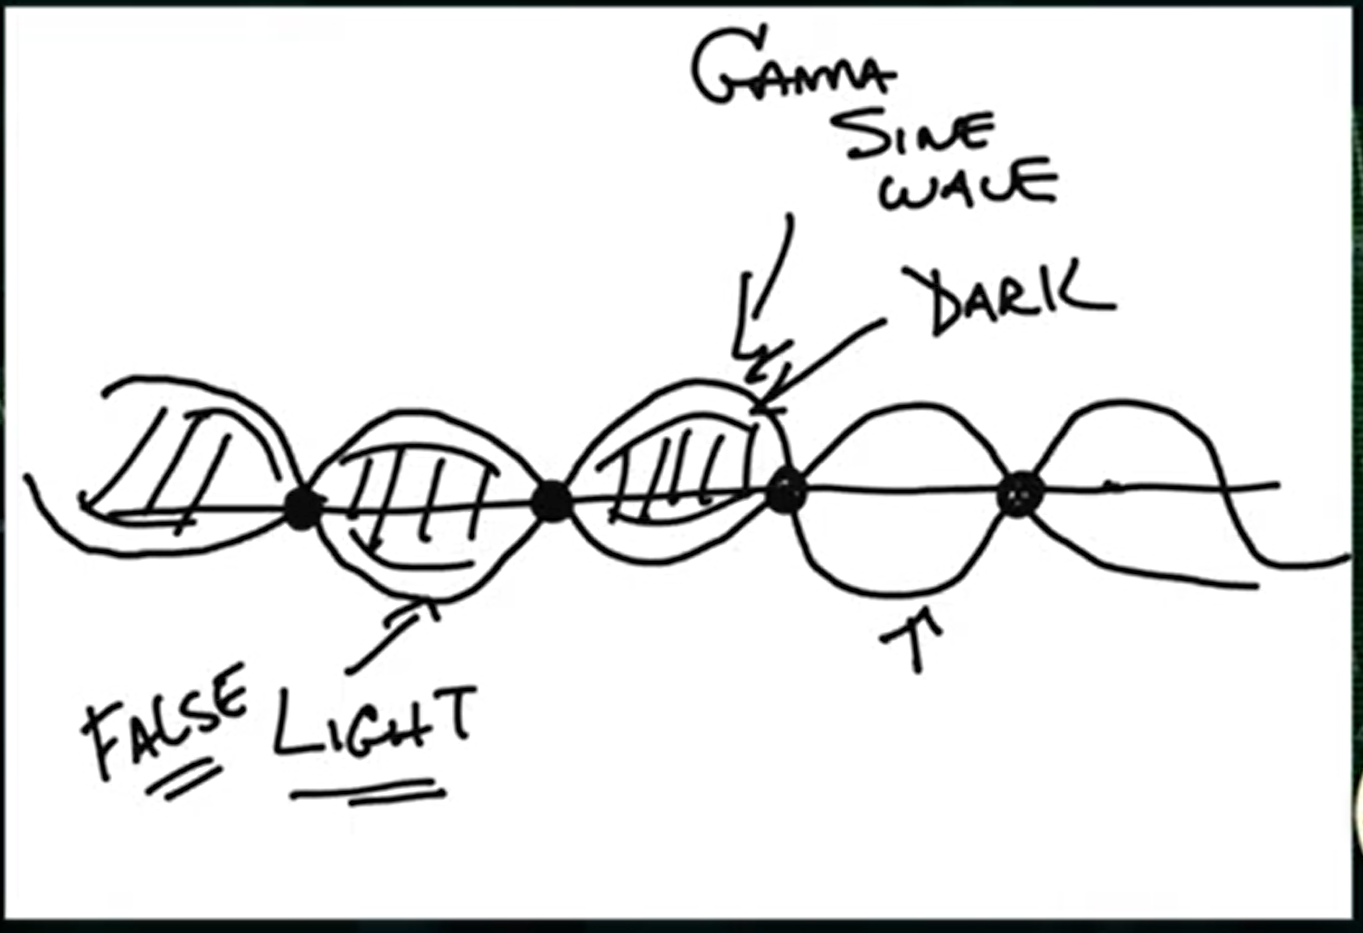 GAMMA
SINE
WAVE
DARK
FALSE LIGHT